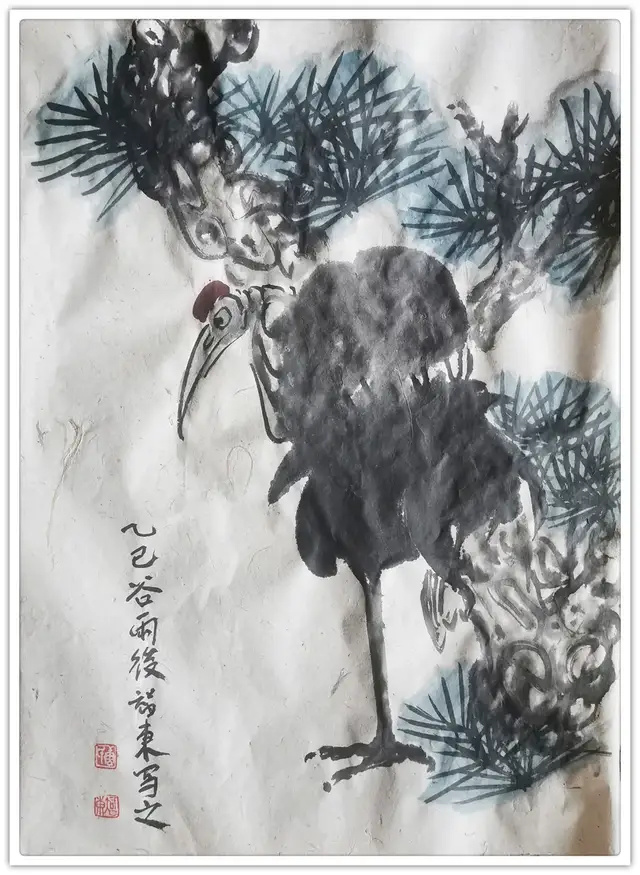 乙巳谷雨後東写之